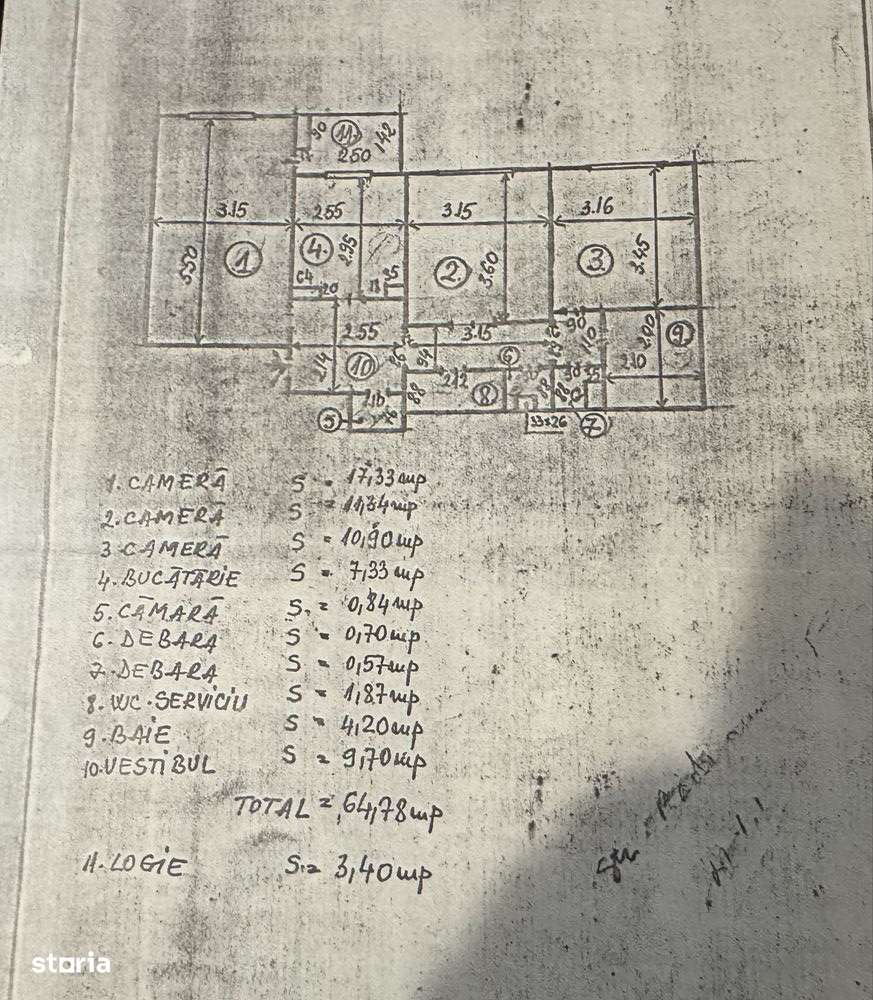 90
11
142
2.50
3.15
2.55
3.15
3.16
550
1
4
2.95
2
3.60
3
3.45
64
20
2.55
3.15
90
110
2.00
9
2.14
10
94
6
2.10
2.12
8
88
90
5
33x26
7
1. CAMERĂ S = 17,33 mp
2. CAMERĂ S = 11,34 mp
3. CAMERĂ S = 10,90 mp
4. BUCĂTĂRIE S = 7,33 mp
5. CĂMARĂ S. = 0,84 mp
6. DEBARA S = 0,70 mp
7. DEBARA S = 0,57 mp
8. WC. SERVICIU S = 1,87 mp
9. BAIE S = 4,20 mp
10. VESTIBUL S = 9,70 mp
TOTAL = 64,78 mp
11. LOGIE S. = 3,40 mp
storia